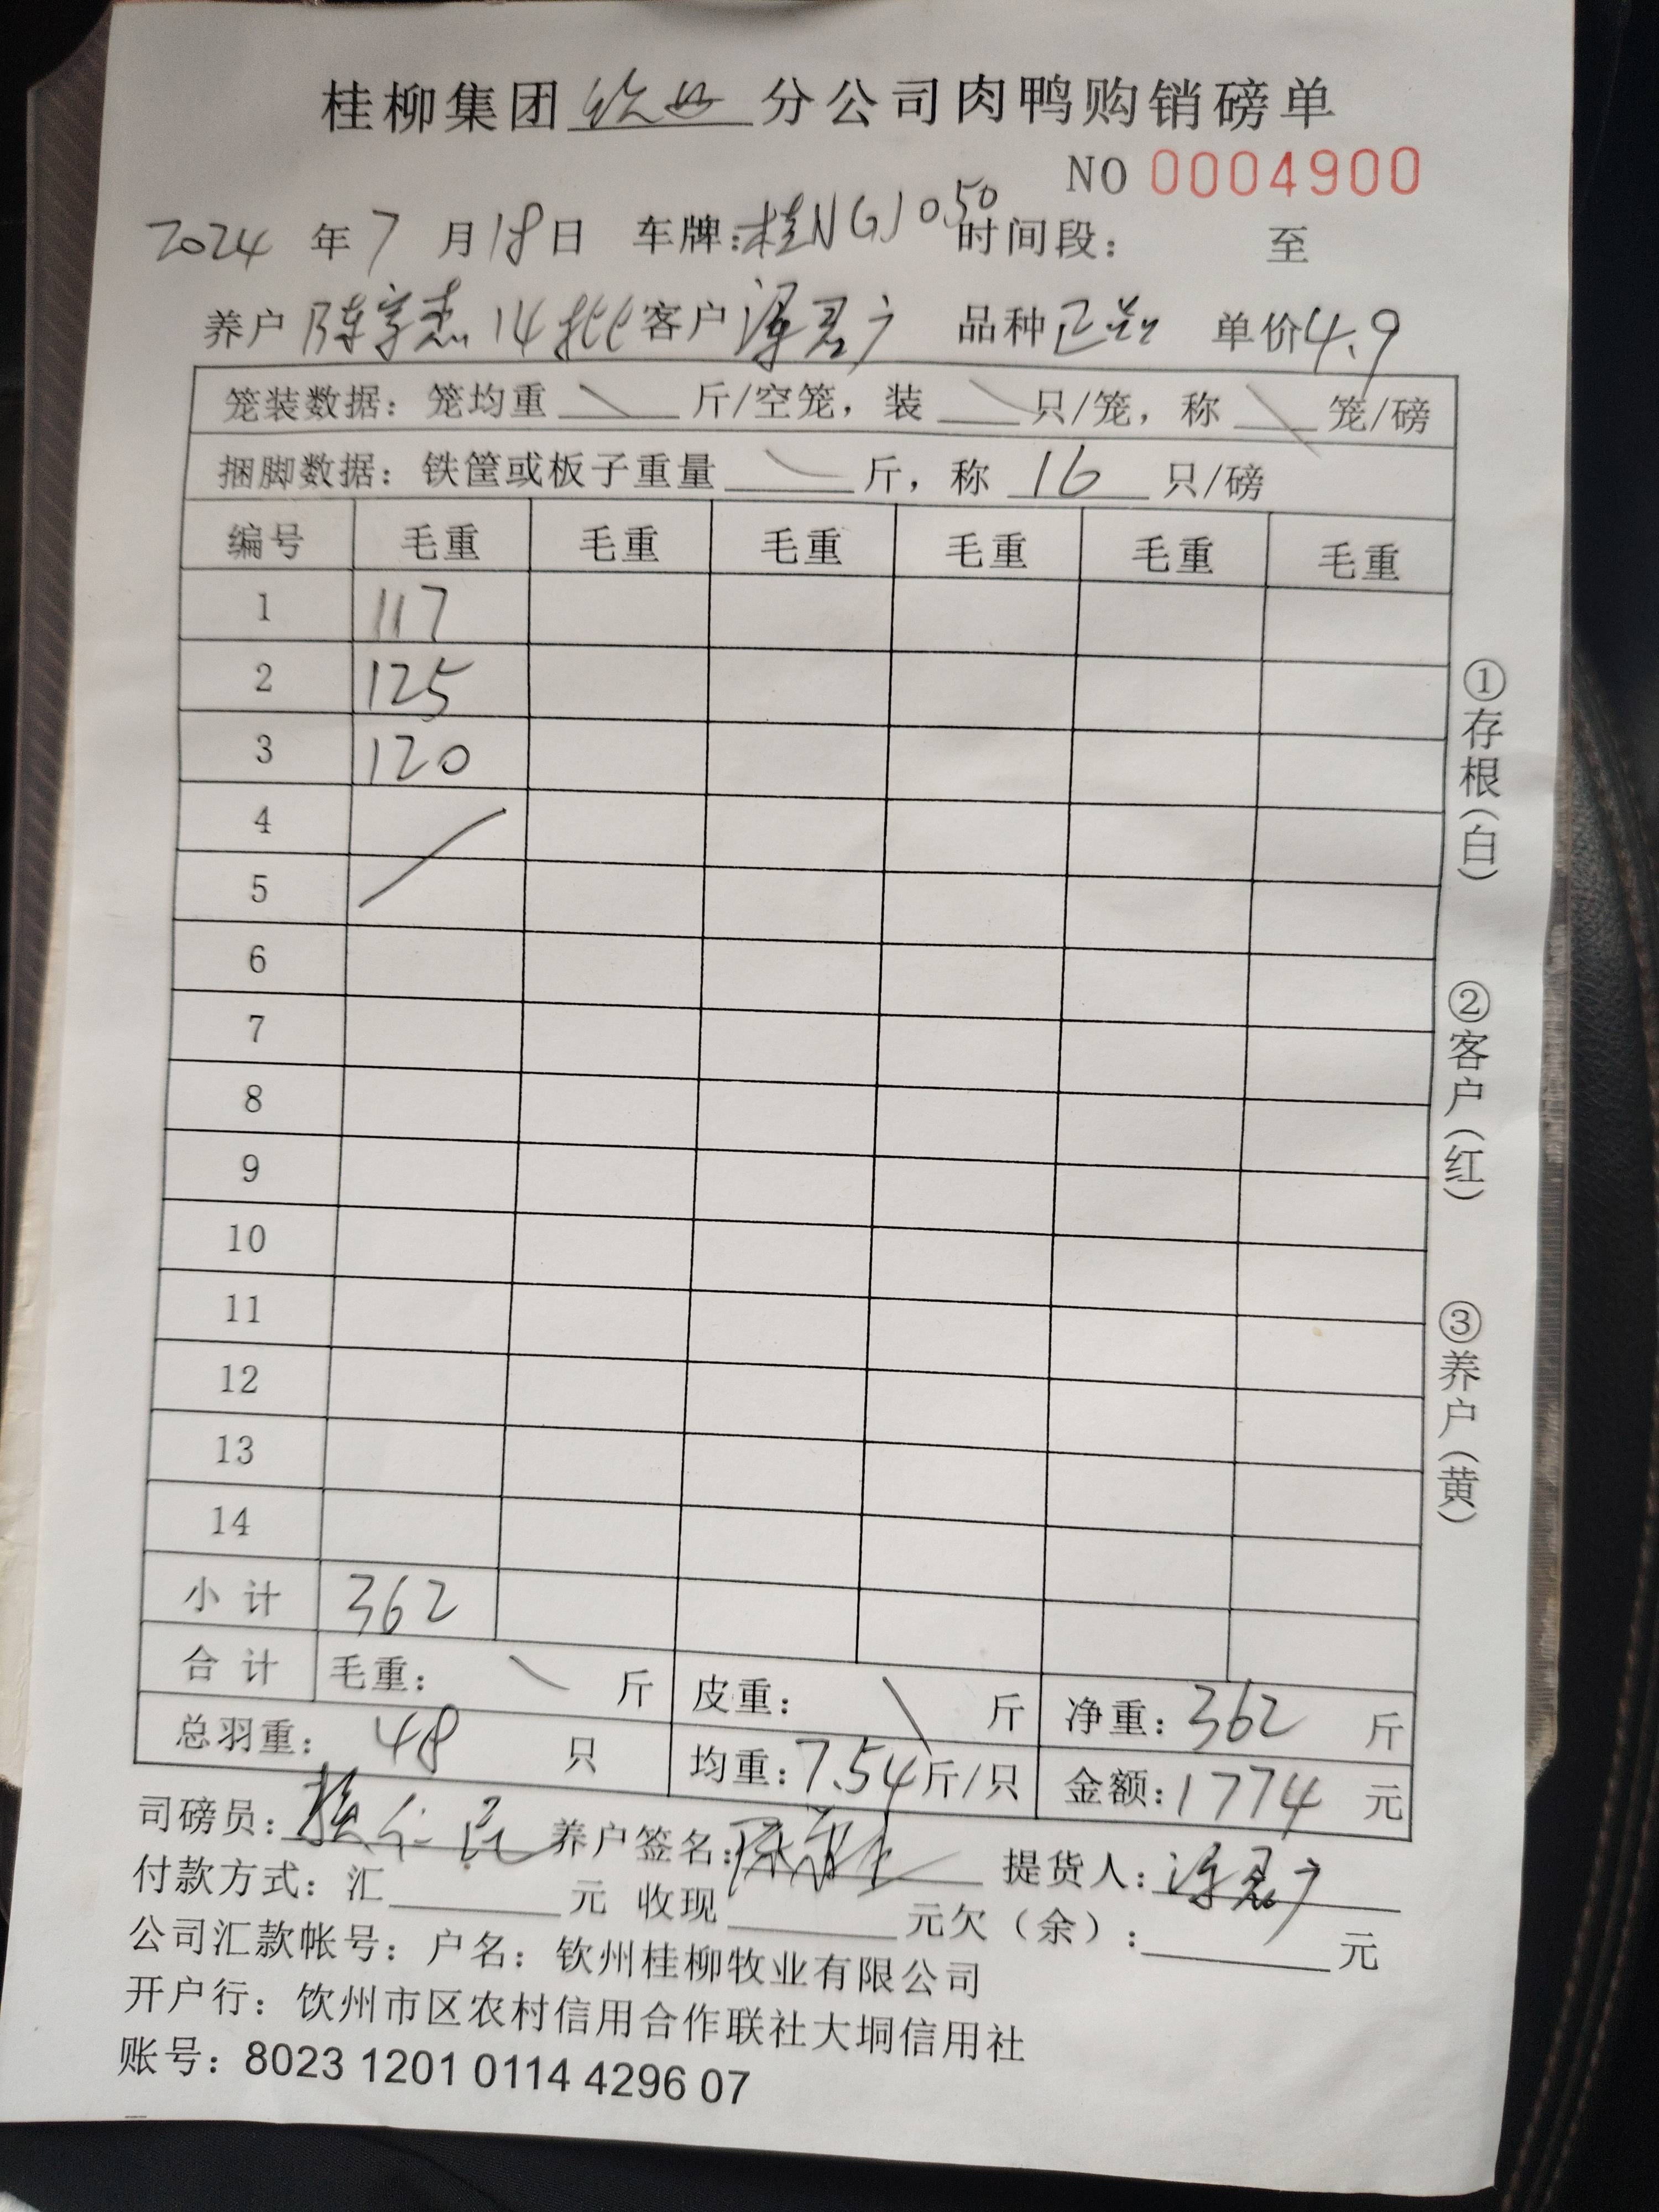 桂柳集团钦州分公司肉鸭购销磅单
NO 0004900
2024 年 7 月 18 日 车牌:桂NGJ050 时间段: 至
养户 陈宇杰 14批 客户 泽君广 品种 正 单价 4.9
笼装数据: 笼均重 \ 斤/空笼, 装 \ 只/笼, 称 \ 笼/磅
捆脚数据: 铁筐或板子重量 \ 斤, 称 16 只/磅
编号 毛重 毛重 毛重 毛重 毛重 毛重
1 117
2 125
3 120
4
5
6
7
8
9
10
11
12
13
14
小计 362
合计 毛重: \ 斤 皮重: \ 斤 净重: 362 斤
总羽重: 48 只 均重: 7.54 斤/只 金额: 1774 元
司磅员: 养户签名: 提货人: 君广
付款方式: 汇 元 收现 元欠(余): 元
公司汇款帐号: 户名: 钦州桂柳牧业有限公司
开户行: 饮州市区农村信用合作联社大垌信用社
账号: 8023 1201 0114 4296 07
①存根(白)
②客户(红)
③养户(黄)